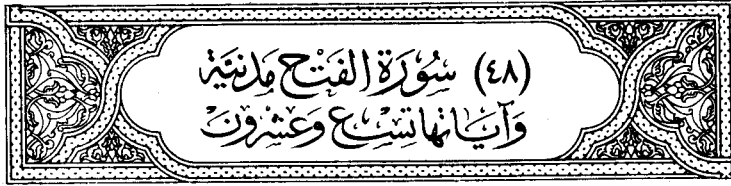 (٤٨) سُورَة الفَتْح مَدَنيَّة
وَآيَاتهَا تِسْع وَعشْرُونَ